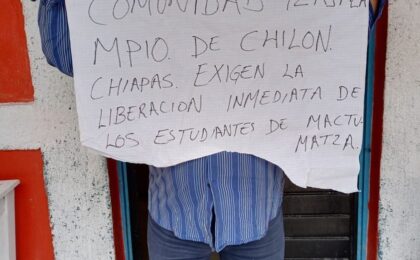 COMUNIDAD
MPIO. DE CHILON.
CHIAPAS. EXIGEN LA
LIBERACION INMEDIATA DE
LOS ESTUDIANTES DE MACTU-
MATZA.